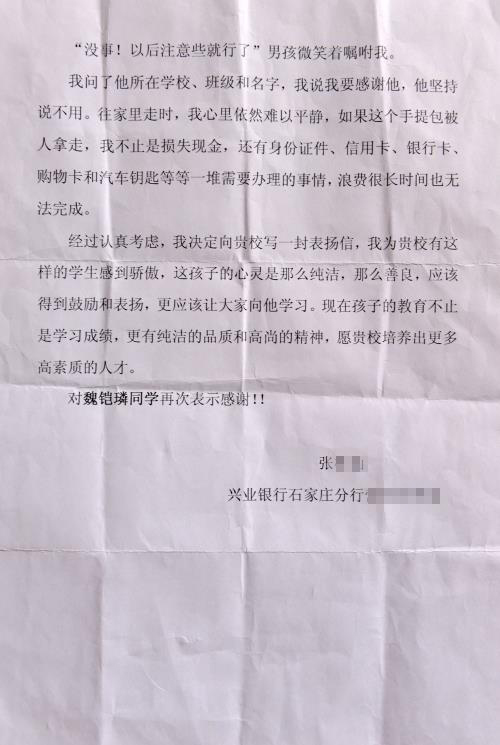 “没事！以后注意些就行了”男孩微笑着嘱咐我。
我问了他所在学校、班级和名字，我说我要感谢他，他坚持
说不用。往家里走时，我心里依然难以平静，如果这个手提包被
人拿走，我不止是损失现金，还有身份证件、信用卡、银行卡、
购物卡和汽车钥匙等等一堆需要办理的事情，浪费很长时间也无
法完成。
经过认真考虑，我决定向贵校写一封表扬信，我为贵校有这
样的学生感到骄傲，这孩子的心灵是那么纯洁，那么善良，应该
得到鼓励和表扬，更应该让大家向他学习。现在孩子的教育不止
是学习成绩，更有纯洁的品质和高尚的精神，愿贵校培养出更多
高素质的人才。
对魏铠璘同学再次表示感谢!!
张
兴业银行石家庄分行